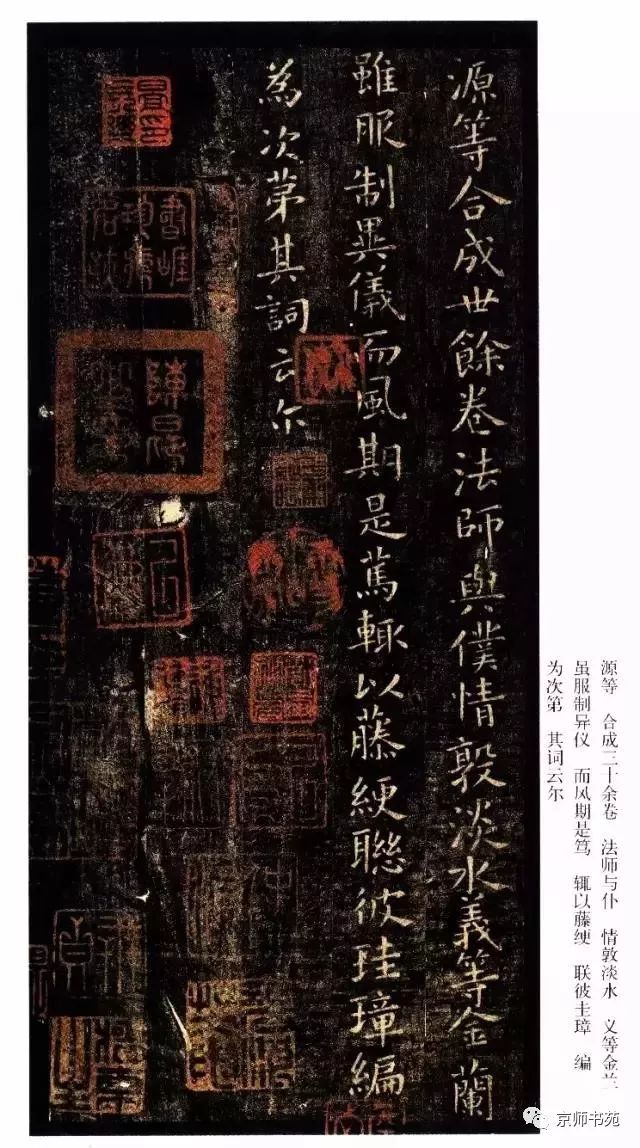 源等合成卅餘卷法師與僕情敦淡水義等金蘭
雖服制異儀而風期是篤輙以藤綆聯彼珪璋編
為次第其詞云尔
源等　合成三十余卷　法师与仆　情敦淡水　义等金兰
虽服制异仪　而风期是笃　辄以藤绠　联彼圭璋　编
为次第　其词云尔
京师书苑